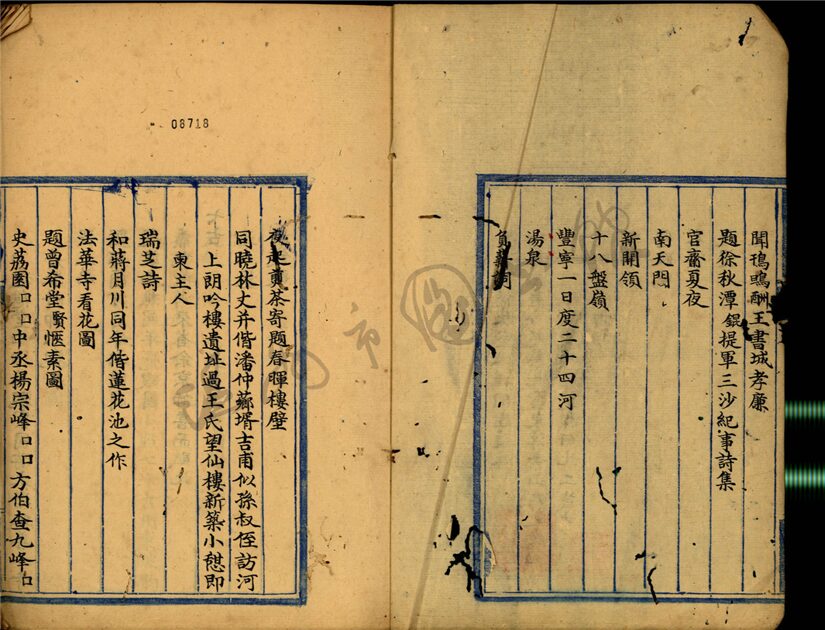 聞鴞鳴酬王書城孝廉
題徐秋潭錕提軍三沙紀事詩集
官齋夏夜
南天門
新開嶺
十八盤嶺
豐寧一日度二十四河
湯泉
負薪詞
08718
煎茶寄題春暉樓壁
同曉林丈并偕潘仲薌壻吉甫似孫叔侄訪河
上朗吟樓遺址過王氏望仙樓新築小憩即
柬主人
瑞芝詩
和蔣月川同年偕蓮花池之作
法華寺看花圖
題曾希堂賢愜素圖
史荔園口口中丞楊宗峰口口方伯查九峰口